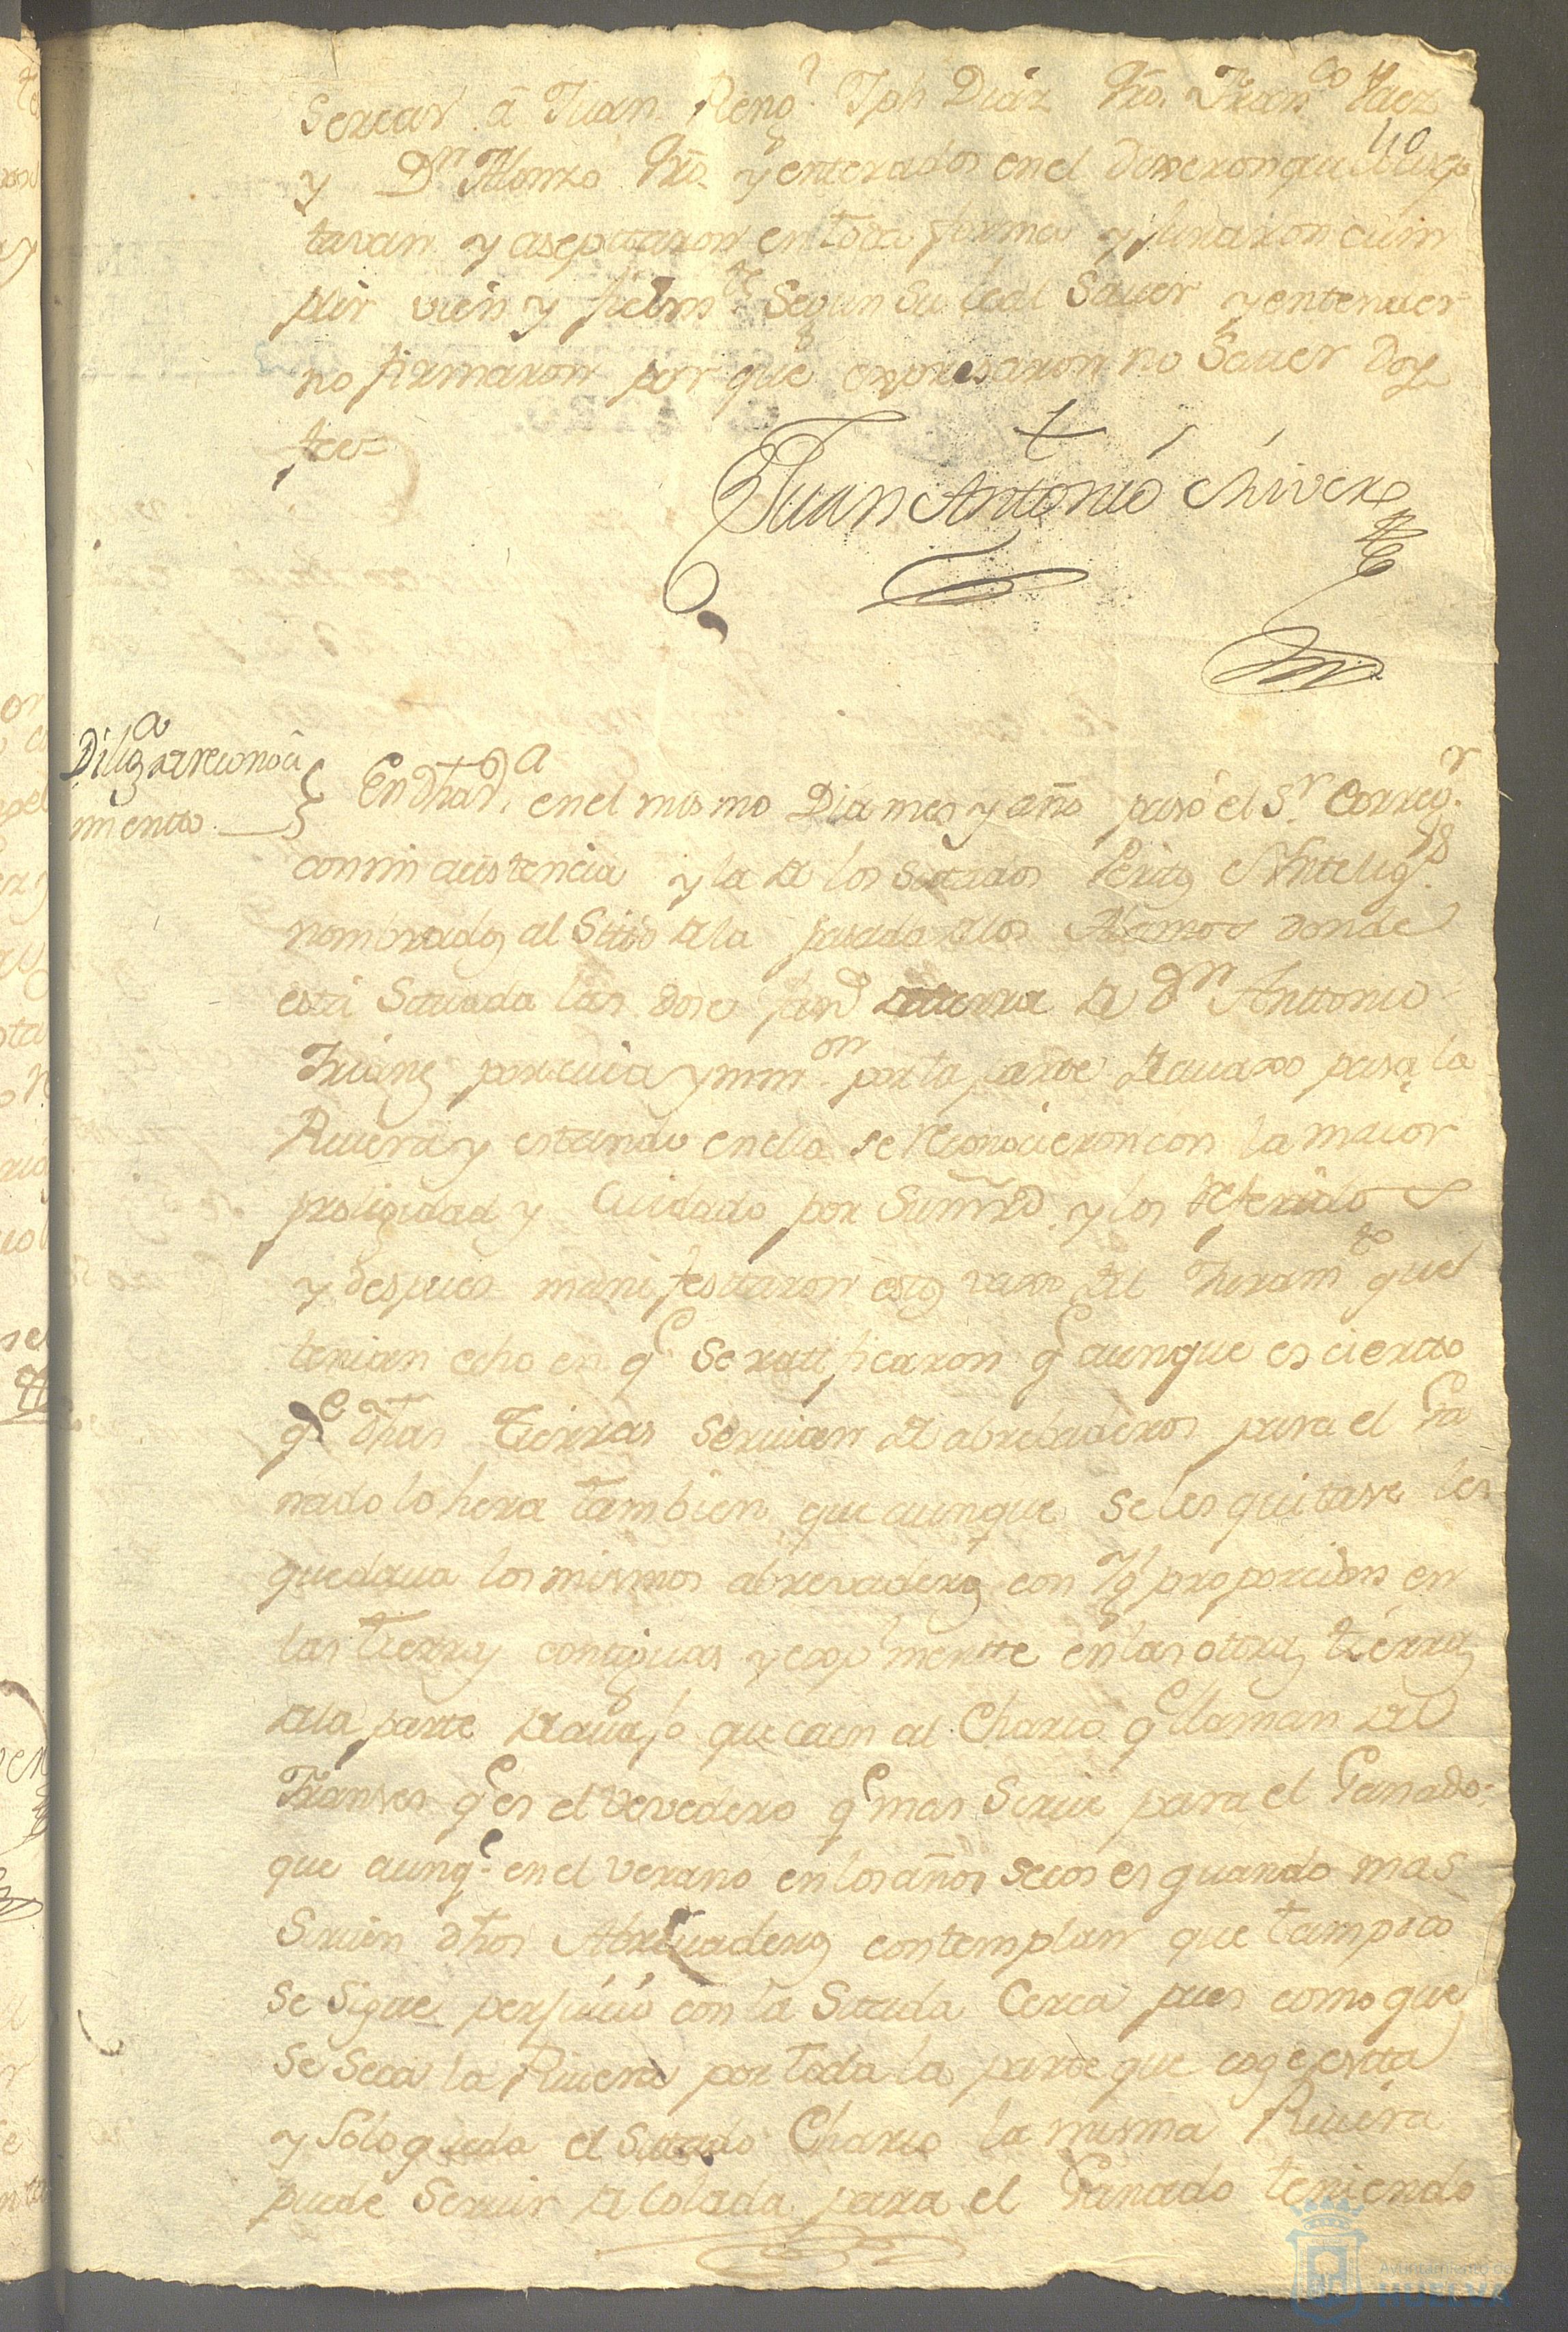 sercar â Juan Reng.l Jph Diaz Pro. Fran.co Vaez
110
y D.n Alonzo Pro. y enterados en el dixeron que lo asep
tavan y aseptaron en toda forma y juraron cum
plir vien y fielm.te Segun su leal Saver y entender
no firmaron por que expresaron no Saver Doy
fee=
Juan Antonio Chivere
Dilig.a de reconoci
miento
En dha V.a en el mismo Dia mes y año paso el S.r Correg.r
con mi asistencia y la de los Sitados Peritos e Yntelig.s
nombrados al Sitio de la pasada de los Alamos donde
está Situada las dose fan.s de tierra de D.n Anttonio
por cuia ymm.on por la parte de avaxo pasa la
Rivera y estando en ella se reconocieron con la maior
prolixidad y Cuidado por Su mrd. y los referidos
y despues manifestaron estos vaxo del Juram.to que
tenian echo en q.e se ratificaron q.e aunque es cierto
q.e dhas Tierras servian de abrebaderos para el Ga
nado lo hera tambien que aunque se les quitase les
quedava los mismos abrevaderos con Yg.l proporcion en
las tierras contiguas y esp.lmente en las otras tierras
de la parte de avajo que caen al Charco q.e llaman del
Franses q.e es el vevedero q.e mas Sirve para el Ganado:
que aunq.e en el verano en los años secos es quando mas
Sirven dhos Abrevaderos contemplan que tampoco
se sigue perjuicio con la Sitada Cerca pues como que
se seca la Rivera por toda la parte que coge esta
y solo queda el Sitado Charco la misma Rivera
puede Servir de Colada para el Ganado teniendo
Ayuntamiento de
HUELVA